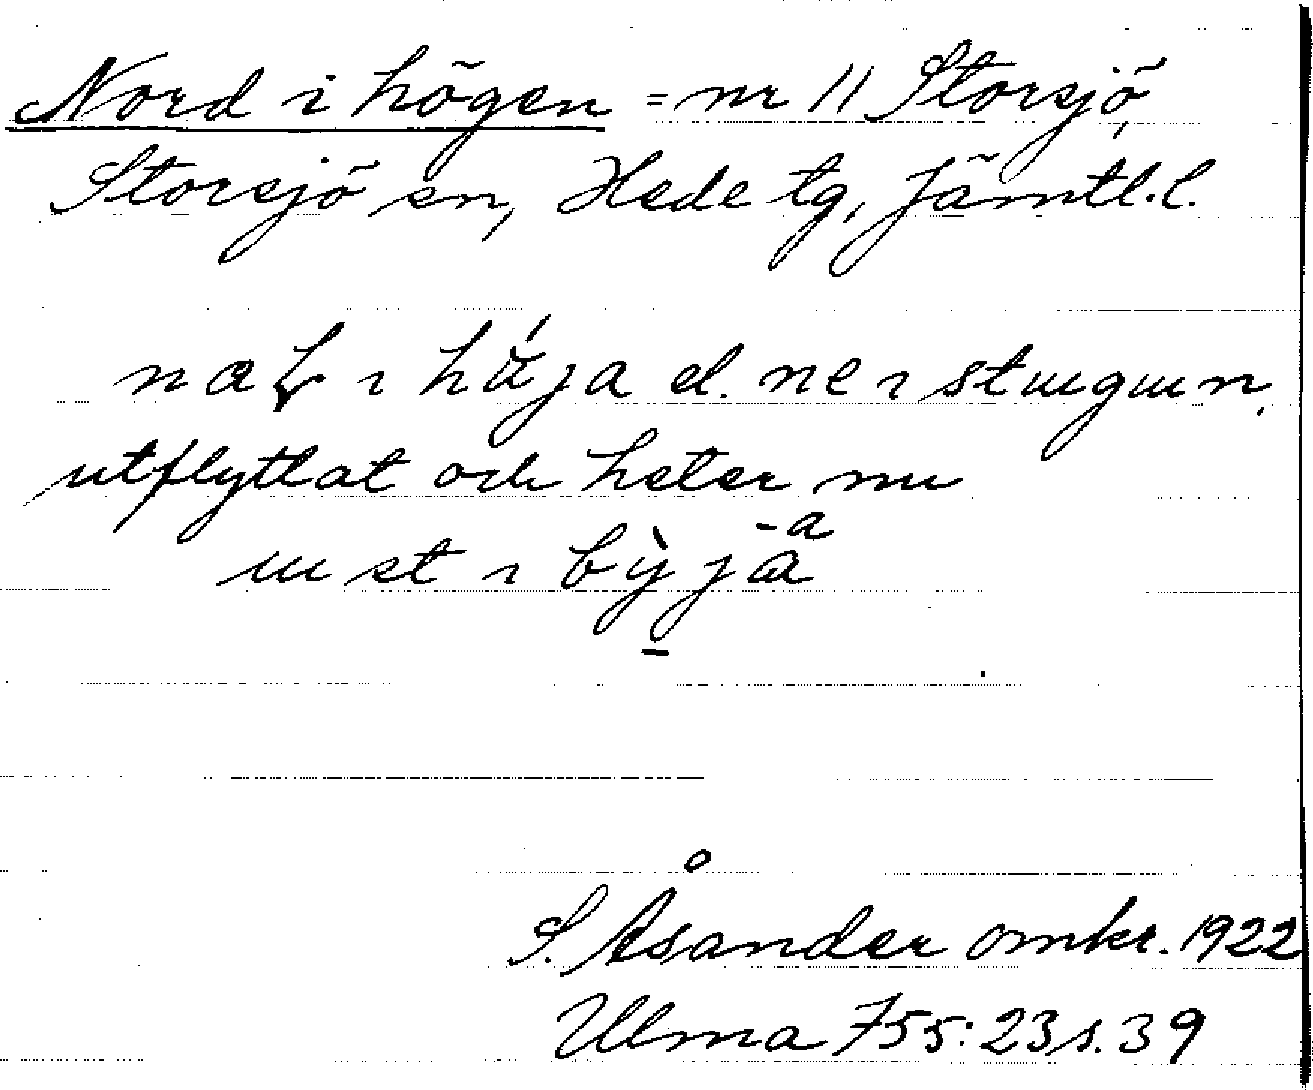 Nord i högen = nr 11 Storsjö,
Storsjö sn, Hede tg, Jämtl. l.
i el. ne i
utflyttat och heter nu
st i
S. Åsander omkr. 1922
Ulma 755:23 s. 39